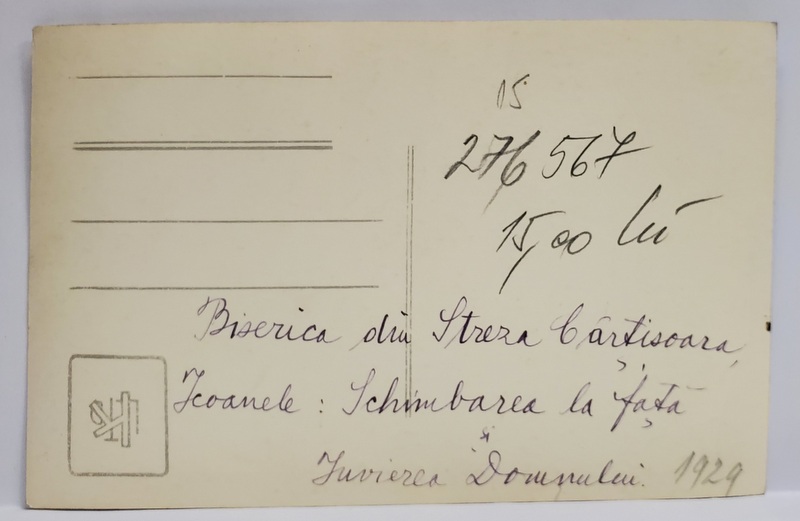 15
276 567
15,00 lei
Biserica din Streza Cârțișoara,
Icoanele: Schimbarea la față
și
Învierea Domnului. 1929